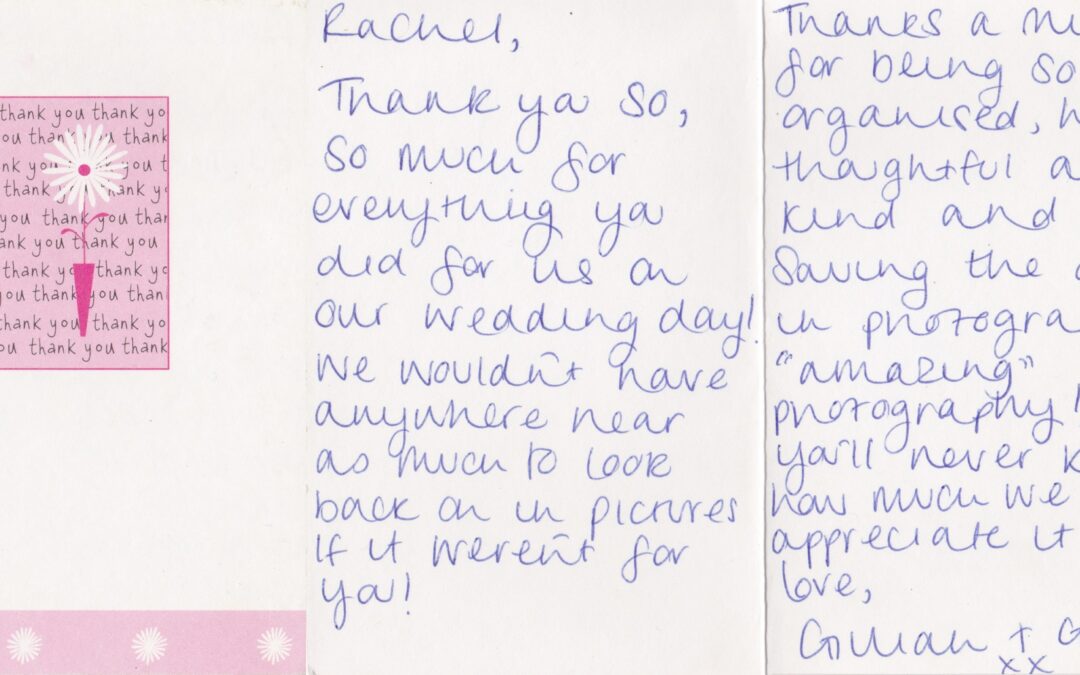 thank you thank yo
ou thank you thank
nk you thank you t
thank you thank y
you thank you than
ank you thank you
thank you thank yo
you thank you than
thank you thank yo
ou thank you thank
Rachel,
Thank ya so,
so much for
everything ya
did for us on
our wedding day!
We wouldn't have
anywhere near
as much to look
back on in pictures
if it weren't for
ya!
Thanks a
for being so
organised,
thoughtful a
kind and
Saving the
in photogra
"amazing"
photography!
ya'll never k
how much we
appreciate it
love,
Gillian + G
xx